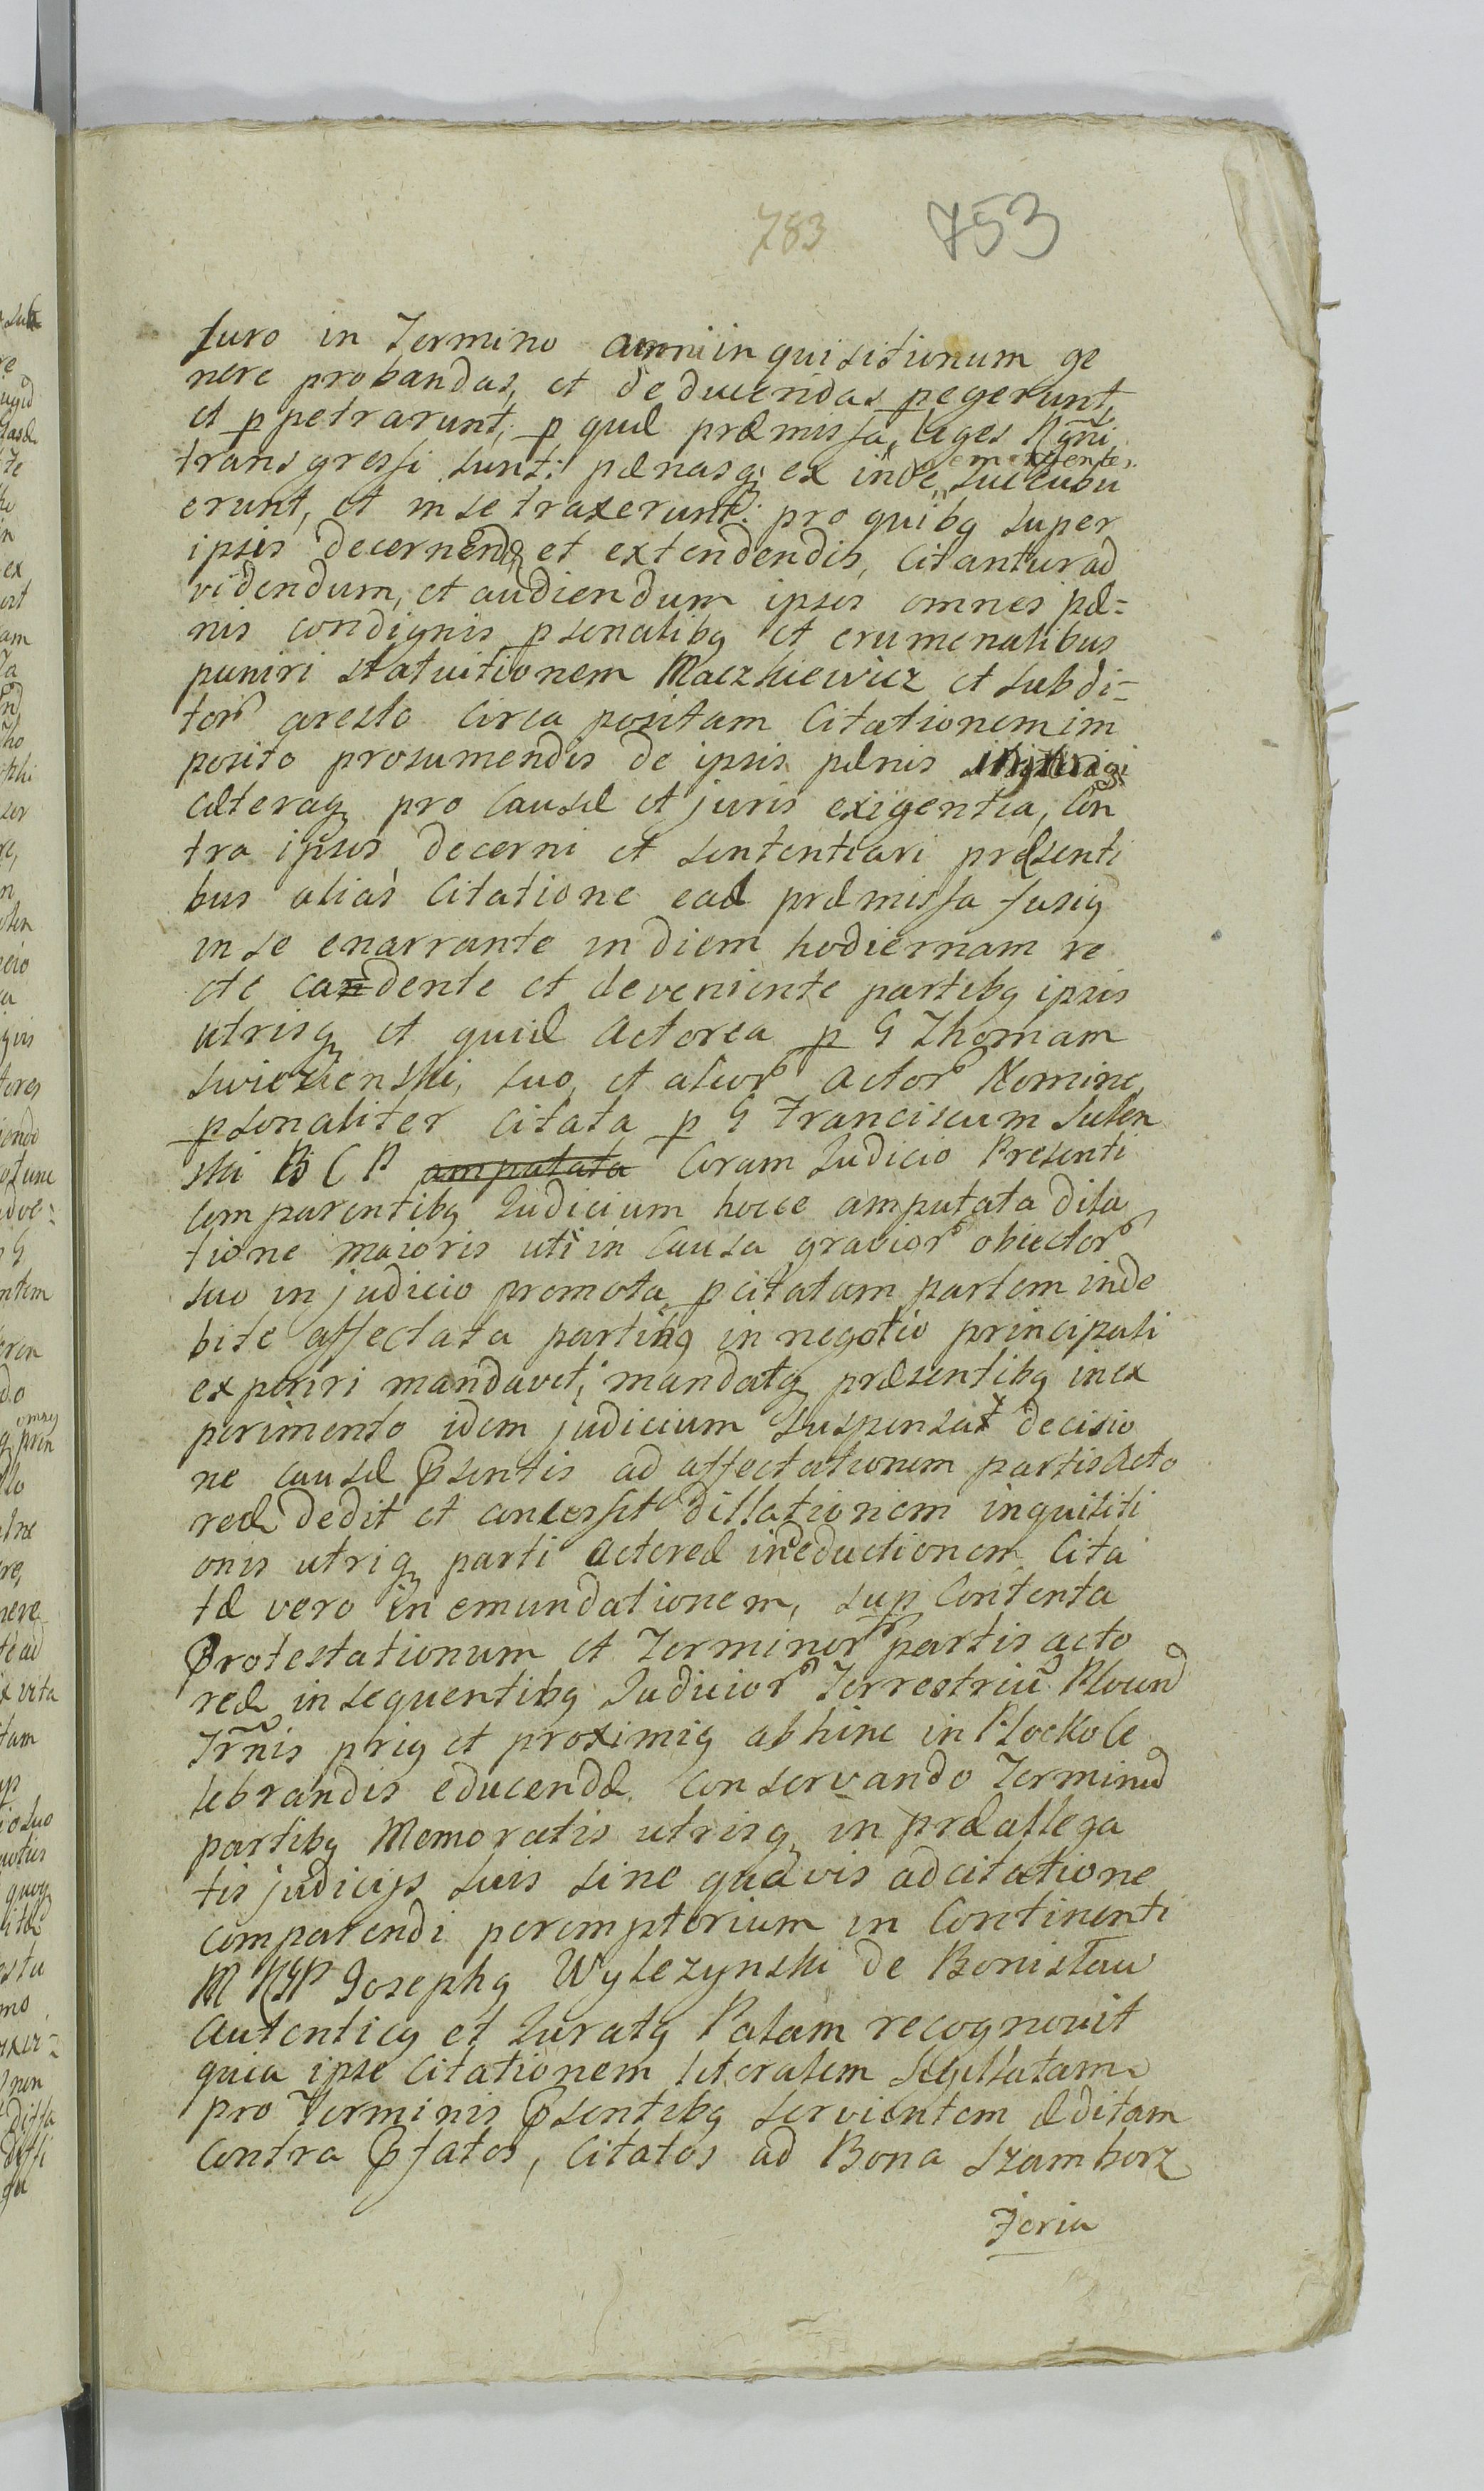 783 753
turo in Termino omni inquisitionum ge
nere probandas, et deducendas pegerunt,
et ppetrarunt, p quæ præmissa, leges Rgñi
transgressi sunt: pænasq; ex inde emergentes
succubu
erunt, et in se traxerunt: pro quibq super
ipsis decernend et extendendis, Citantur ad
videndum, et audiendum ipsos omnes pæ=
nis condignis psonalibq et crumenalibus
puniri statuitionem Maczkiewicz et subdi=
tor aresto circa positam Citationem im
posito prosumendis de ipsis pænis
cæteraq pro Causæ et juris exigentia, Con
tra ipsos decerni et sententiari præsenti
bus alias Citatione ead præmissa fusiq
in se enarrante in diem hodiernam re
cte cadente et deveniente partibq ipsis
utrisq et quid Actorea p G Thomam
suo, et alior Actor Nomine,
psonaliter citata p G Franciscum Sulen
ski B C P amputata Coram Judicio Presenti
Comparentibq Judicium hocce amputata dila
tione maioris uti in Causa gravior obiector
suo in judicio promota p citatam partem inde
bite affectata partibq in negotio principali
experiri mandavit; mandatq præsentibq in ex
perimento idem judicium suspensa decisio
ne causæ Psentis ad affectationem partis Acto
reæ dedit et concessit dillationem inquisiti
onis utriq parti Actoreæ in eductionem Cita
tæ vero in emundationem, sup Contenta
Protestationum et Terminor partis acto
reæ in sequentibq Judicior Terrestriu Plocen
Trñis priq et proximiq abhinc in Plocko Ce
lebrandis educendæ Conservando Terminu
partibq Memoratis utrisq in præallega
tis judicijs suis sine quavis adcitatione
comparendi peremptorium in Continenti
M RGP Josephq Wylezynski de Bonisław
Autenticq et Juratq Palam recognovit
quia ipse Citationem literalem Sigillatam
pro Terminis Psentibq servientem æditam
Contra Pfatos, Citatos ad Bona Szamborz
Feria